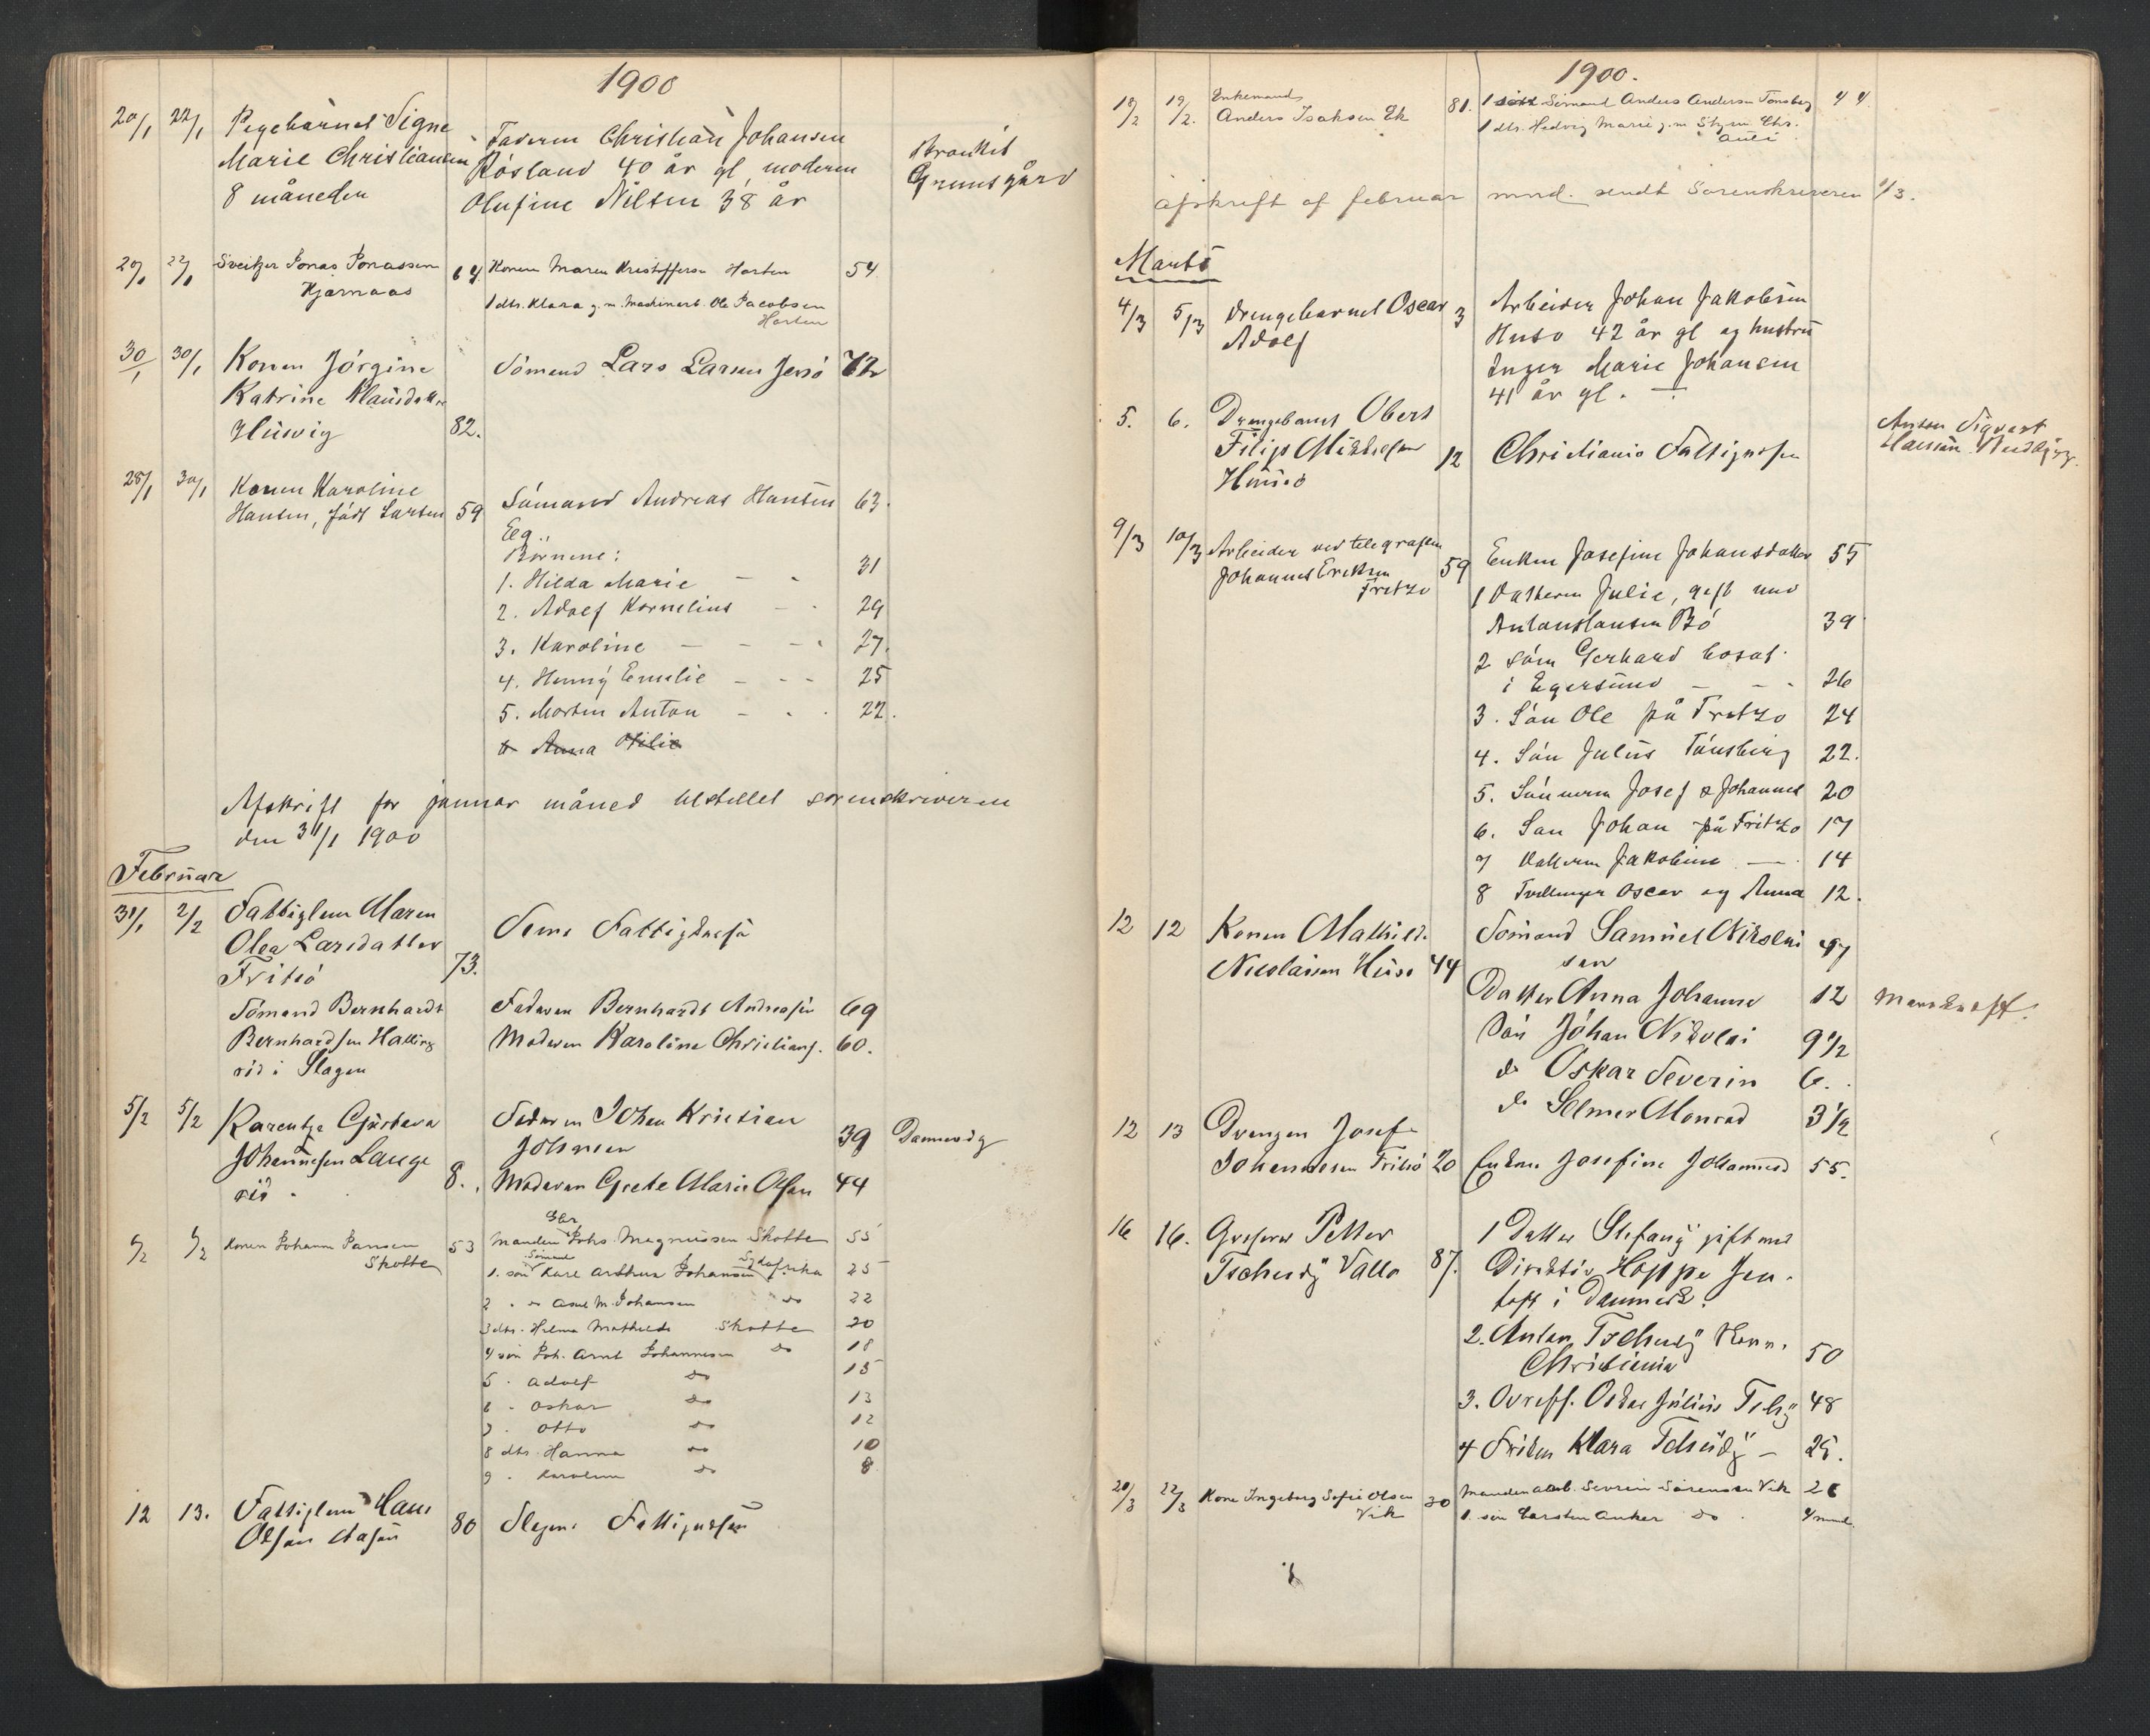 1900
20/1 22/1 Pigebarnet Signe
Marie Christiansen
8 måneder
Faderen Christian Johansen
Råsland 40 år gl, moderen
Olufine Nilsen 38 år
Grunnsgård
20/1 22/1 Sveitzer Jonas Jonassen 64 Konen Maren Kristoffersen Horten 54
Hjarnaas
1 dtr. Klara g. m. Maskinarb. Ole Jacobsen
Horten
30/1 30/1 Konen Jörgine Sömand Lars Larsen Jersö 72
Katrine Klausdatter
Husvig 82.
28/1 30/1 Konen Karoline
Hansen, født Larsen 59 Sömand Andreas Hansen 63.
Eeg.
Börnene:
1. Hilda Marie - - 31
2. Adolf Kornelius - - 29
3. Karoline - - - 27.
4. Henny Emilie - - - 25
5. Morten Anton - - . 22.
6 Anna Otilie
Afskrift for januar måned tilstillet sorenskriveren
den 31/1 1900
Februar
31/1 2/2 Fattiglem Maren
Olea Larsdatter Sems Fattigkasse
Fritsö 73.
Sömand Bernhardt Faderen Bernhardt Andreasen 69
Bernhardsen Halling Moderen Karoline Christians. 60.
röd i Slagen
5/2 5/2 Karentze Gustava Faderen Johan Kristian
Johannesen Lange Johnsen 39
röd . 8. Moderen Grete Marie Olsen 44
6/2 6/2 Konen Johanne Jansen 53 Manden Johs. Magnussen Skotte 55
Skotte
1. sön Karl Arthur Johansen Sydafrika 25
2 . do Axel M. Johansen do 22
3 dtr. Helma Mathilde Skotte 20
4 sön Joh. Arnt Johannesen do 18
5 . Adolf do 15
6 . Oskar do 13
7 . Otto do 12
8 dtr. Hanna do 10
9 . Karoline do 8
12 13. Fattiglem Hans
Olsen Aasen 80 Slagens Fattigkasse
1900.
18/2 19/2. Enkemand
Anders Isaksen Ek 81. 1 sön Sömand Anders Andersen Tønsberg 44
1 dtr. Hedvig Marie g. m. Chr.
Auli
afskrift af februar mnd. sendt Sorenskriveren 1/3.
Marts
4/3 5/3 Drengebarnet Oscar 3 Arbeider Johan Jakobsen
Adolf Husö 42 år gl og hustru
Inger Marie Johansen
41 år gl. -
5. 6. Drengebarnet Obert
Filip Mikkelsen 12 Christiania Fattigvesen
Husö
Anton Sigvart
9/3 10/3 Arbeider ved telegrafen
Johannes Eriksen 59 Enken Josefine Johansdatter 55
Fretzo
1 Datteren Julie, gift med
Anton Hansen Bö 39
2 Sön Gerhard bosat
i Egersund - - - 26
3. Sön Ole på Fretzo 24
4. Sön Julius Tönsberg 22.
5. Sönnerne Josef & Johannes 20
6. Sön Johan på Fritzo 17
7 Datteren Jakobine - 14
8 Tvillinger Oscar og Anna 12.
12 12 Konen Mathilde Sömand Samuel Nikolai 47
Nicolaisen Husö 44 sen
Datter Anna Johanne 12
Sön Johan Nikolai 9 1/2
do Oskar Severin 6.
do Selmer Monrad 3 1/2
12 13 Drengen Josef
Johannesen Fritsö 20 Enken Josefine Johannesd 55.
16 16. Grosserer Petter 1 Datter Stefany gift med
Tschudy Vallo 87. Direktör Hoppe Jen
toft i Danmark.
2. Anton Tschudy
Christiania 50
3. Oskar Julius Tschy 48
4 Fröken Klara Tschudy - 25.
20/3 22/3 Kone Ingeborg Sofie Olsen 30 Manden arb. Severin Sörensen Vik 26
Vik 1. sön Carsten Anker do . 4 mnd.